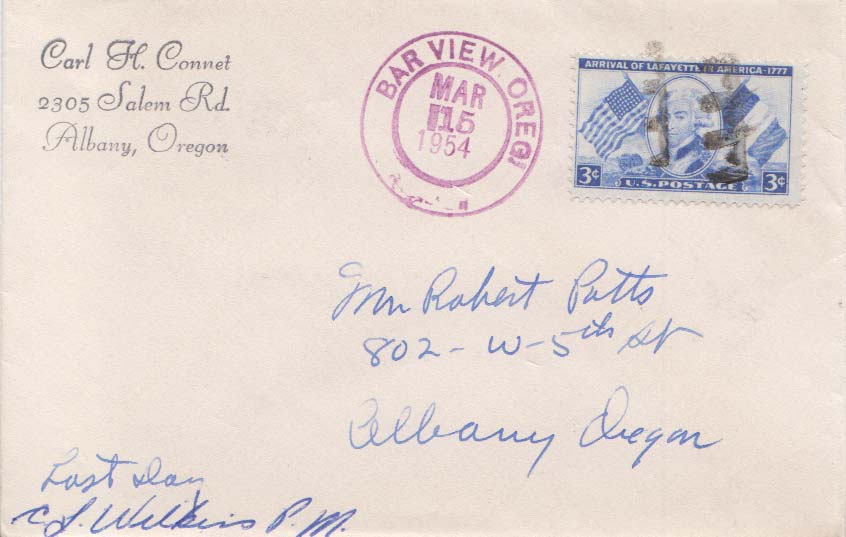 Carl H. Connet
2305 Salem Rd.
Albany, Oregon
BAR VIEW, OREG
MAR
15
1954
ARRIVAL OF LAFAYETTE IN AMERICA-1777
3¢ U.S. POSTAGE 3¢
Mr Robert Potts
802 - W - 5th St
Albany Oregon
Last Day
C. L. Wilkins P. M.